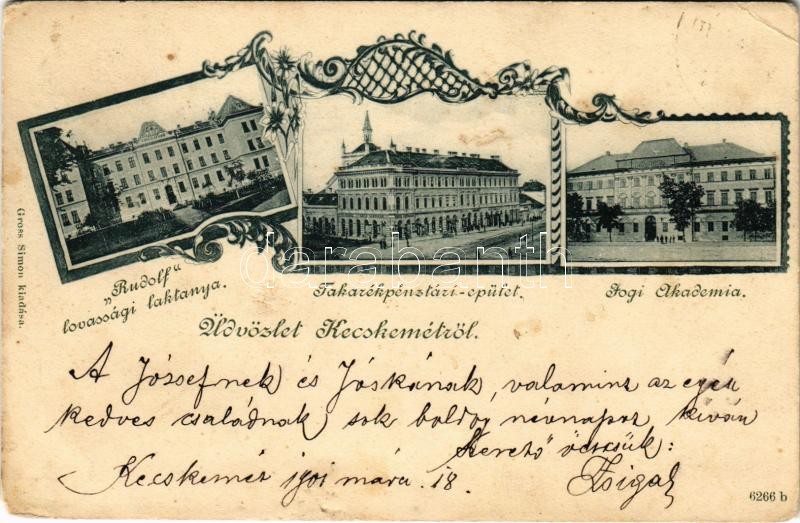 „Rudolf“
lovassági laktanya.
Takarékpénztári-épület.
Jogi Akademia.
Üdvözlet Kecskemétről.
Gross Simon kiadása.
darabanth
A Józsefnek és Jóskának, valamint az egész
kedves családnak sok boldog névnapot kíván
szerető öccsük:
Kecskemét 1901 márc. 18. Zsiga
6266 b